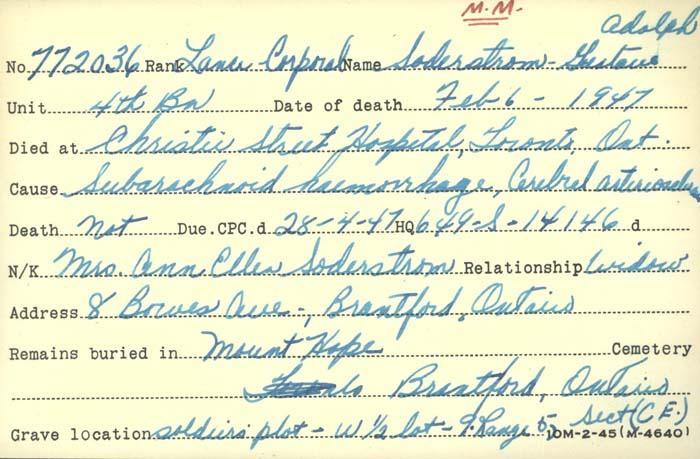 M.M.
Adolph
No. 772036 Rank Lance Corporal Name Soderstrom - Gustave
Unit 4th Bn Date of death Feb 6 - 1947
Died at Christie Street Hospital, Toronto, Ont.
Cause Subarachnoid haemorrhage, Cerebral
Death Not Due. CPC.d 28-4-47 HQ 649-S-14146 d
N/K Mrs. Ann Ellen Soderstrom Relationship Widow
Address 8 Bowes Ave-, Brantford, Ontario
Remains buried in Mount Hope Cemetery
Brantford, Ontario
Grave location soldiers plot - W 1/2 lot - 9. Range 5, Sect (C.E.)
10M-2-45 (M-4640)